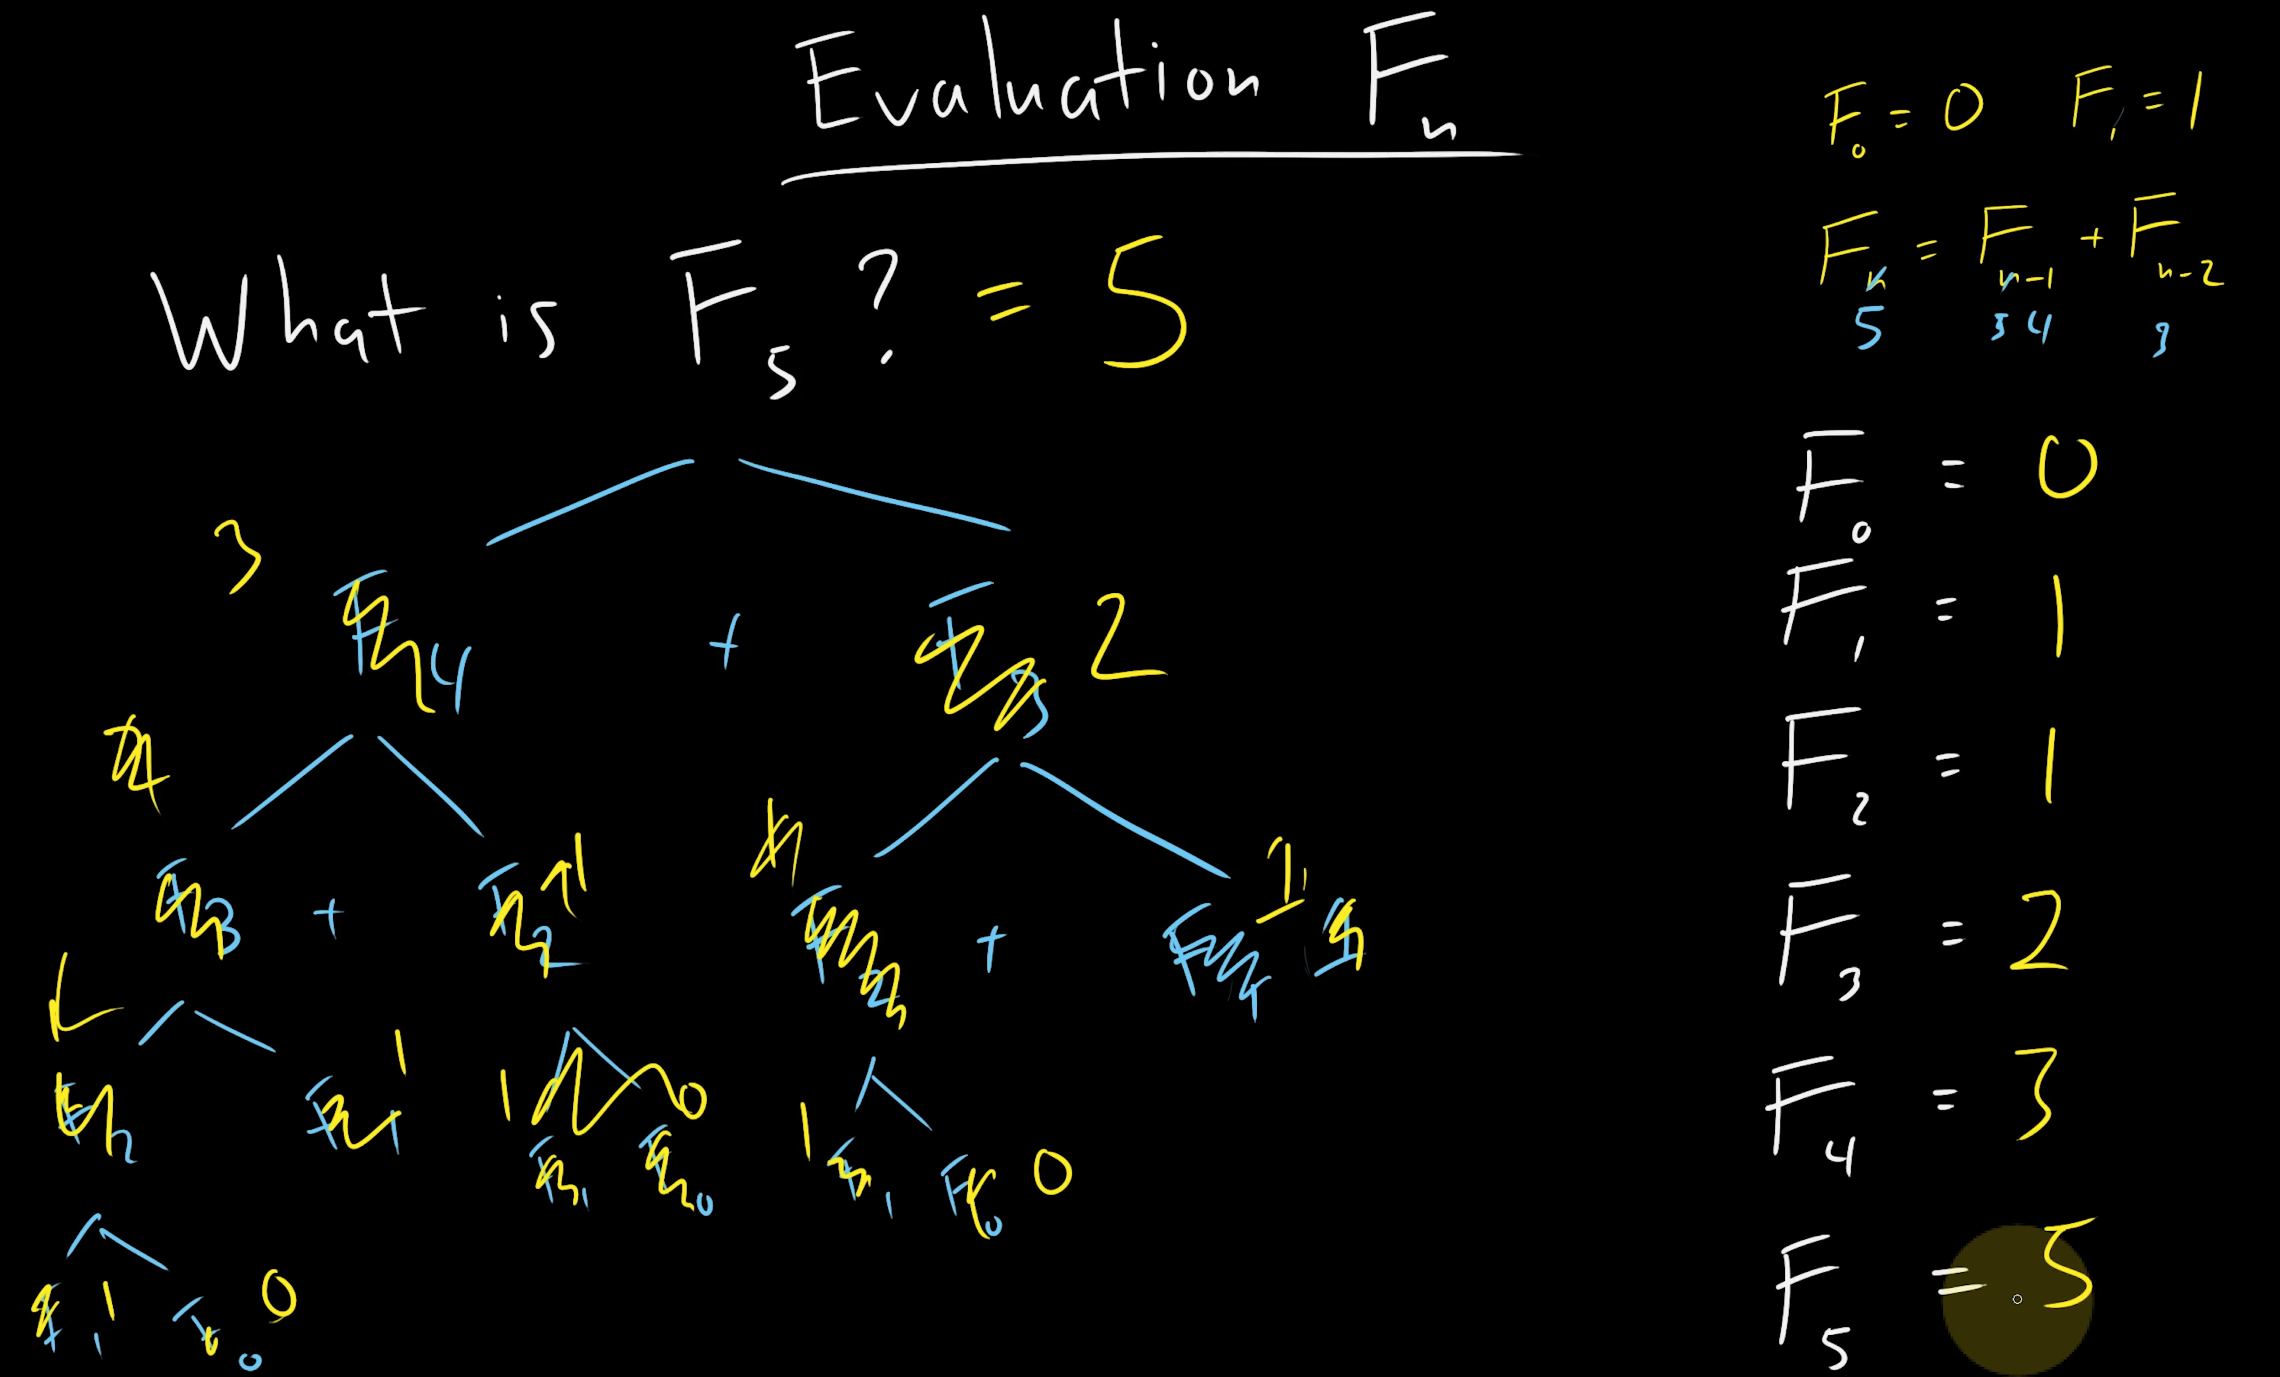 Evaluation F_n
F_0 = 0 F_1 = 1
F_n = F_n-1 + F_n-2
5 3 4 3
What is F_5 ? = 5
3 F_4 + F_3 2
F_3 + F_2 1 F_2 + 1 1
F_2 F_1 1 1 F_1 F_0 0 1 F_1 F_0 0
F_1 1 F_0 0
F_0 = 0
F_1 = 1
F_2 = 1
F_3 = 2
F_4 = 3
F_5 = 5